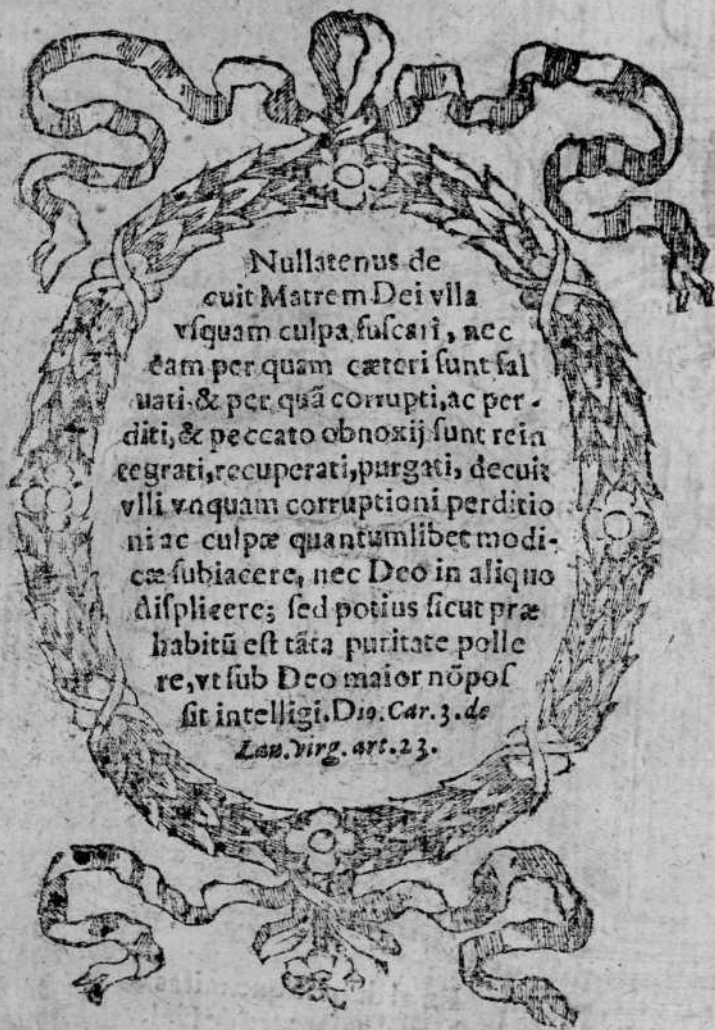 Nullatenus de
cuit Matrem Dei vlla
vſquam culpa fuſcari, nec
eam per quam cæteri ſunt ſal
uati & per quã corrupti, ac per-
diti, & peccato obnoxij ſunt rein
tegrati, recuperati, purgati, decuit
vlli vnquam corruptioni perditio
ni ac culpæ quantumlibet modi-
cæ ſubiacere, nec Deo in aliquo
diſplicere; ſed potius ſicut præ
habitũ eſt tãta puritate polle
re, vt ſub Deo maior nõ poſ
ſit intelligi. Dio. Car. 3. de
Lau. virg. art. 23.